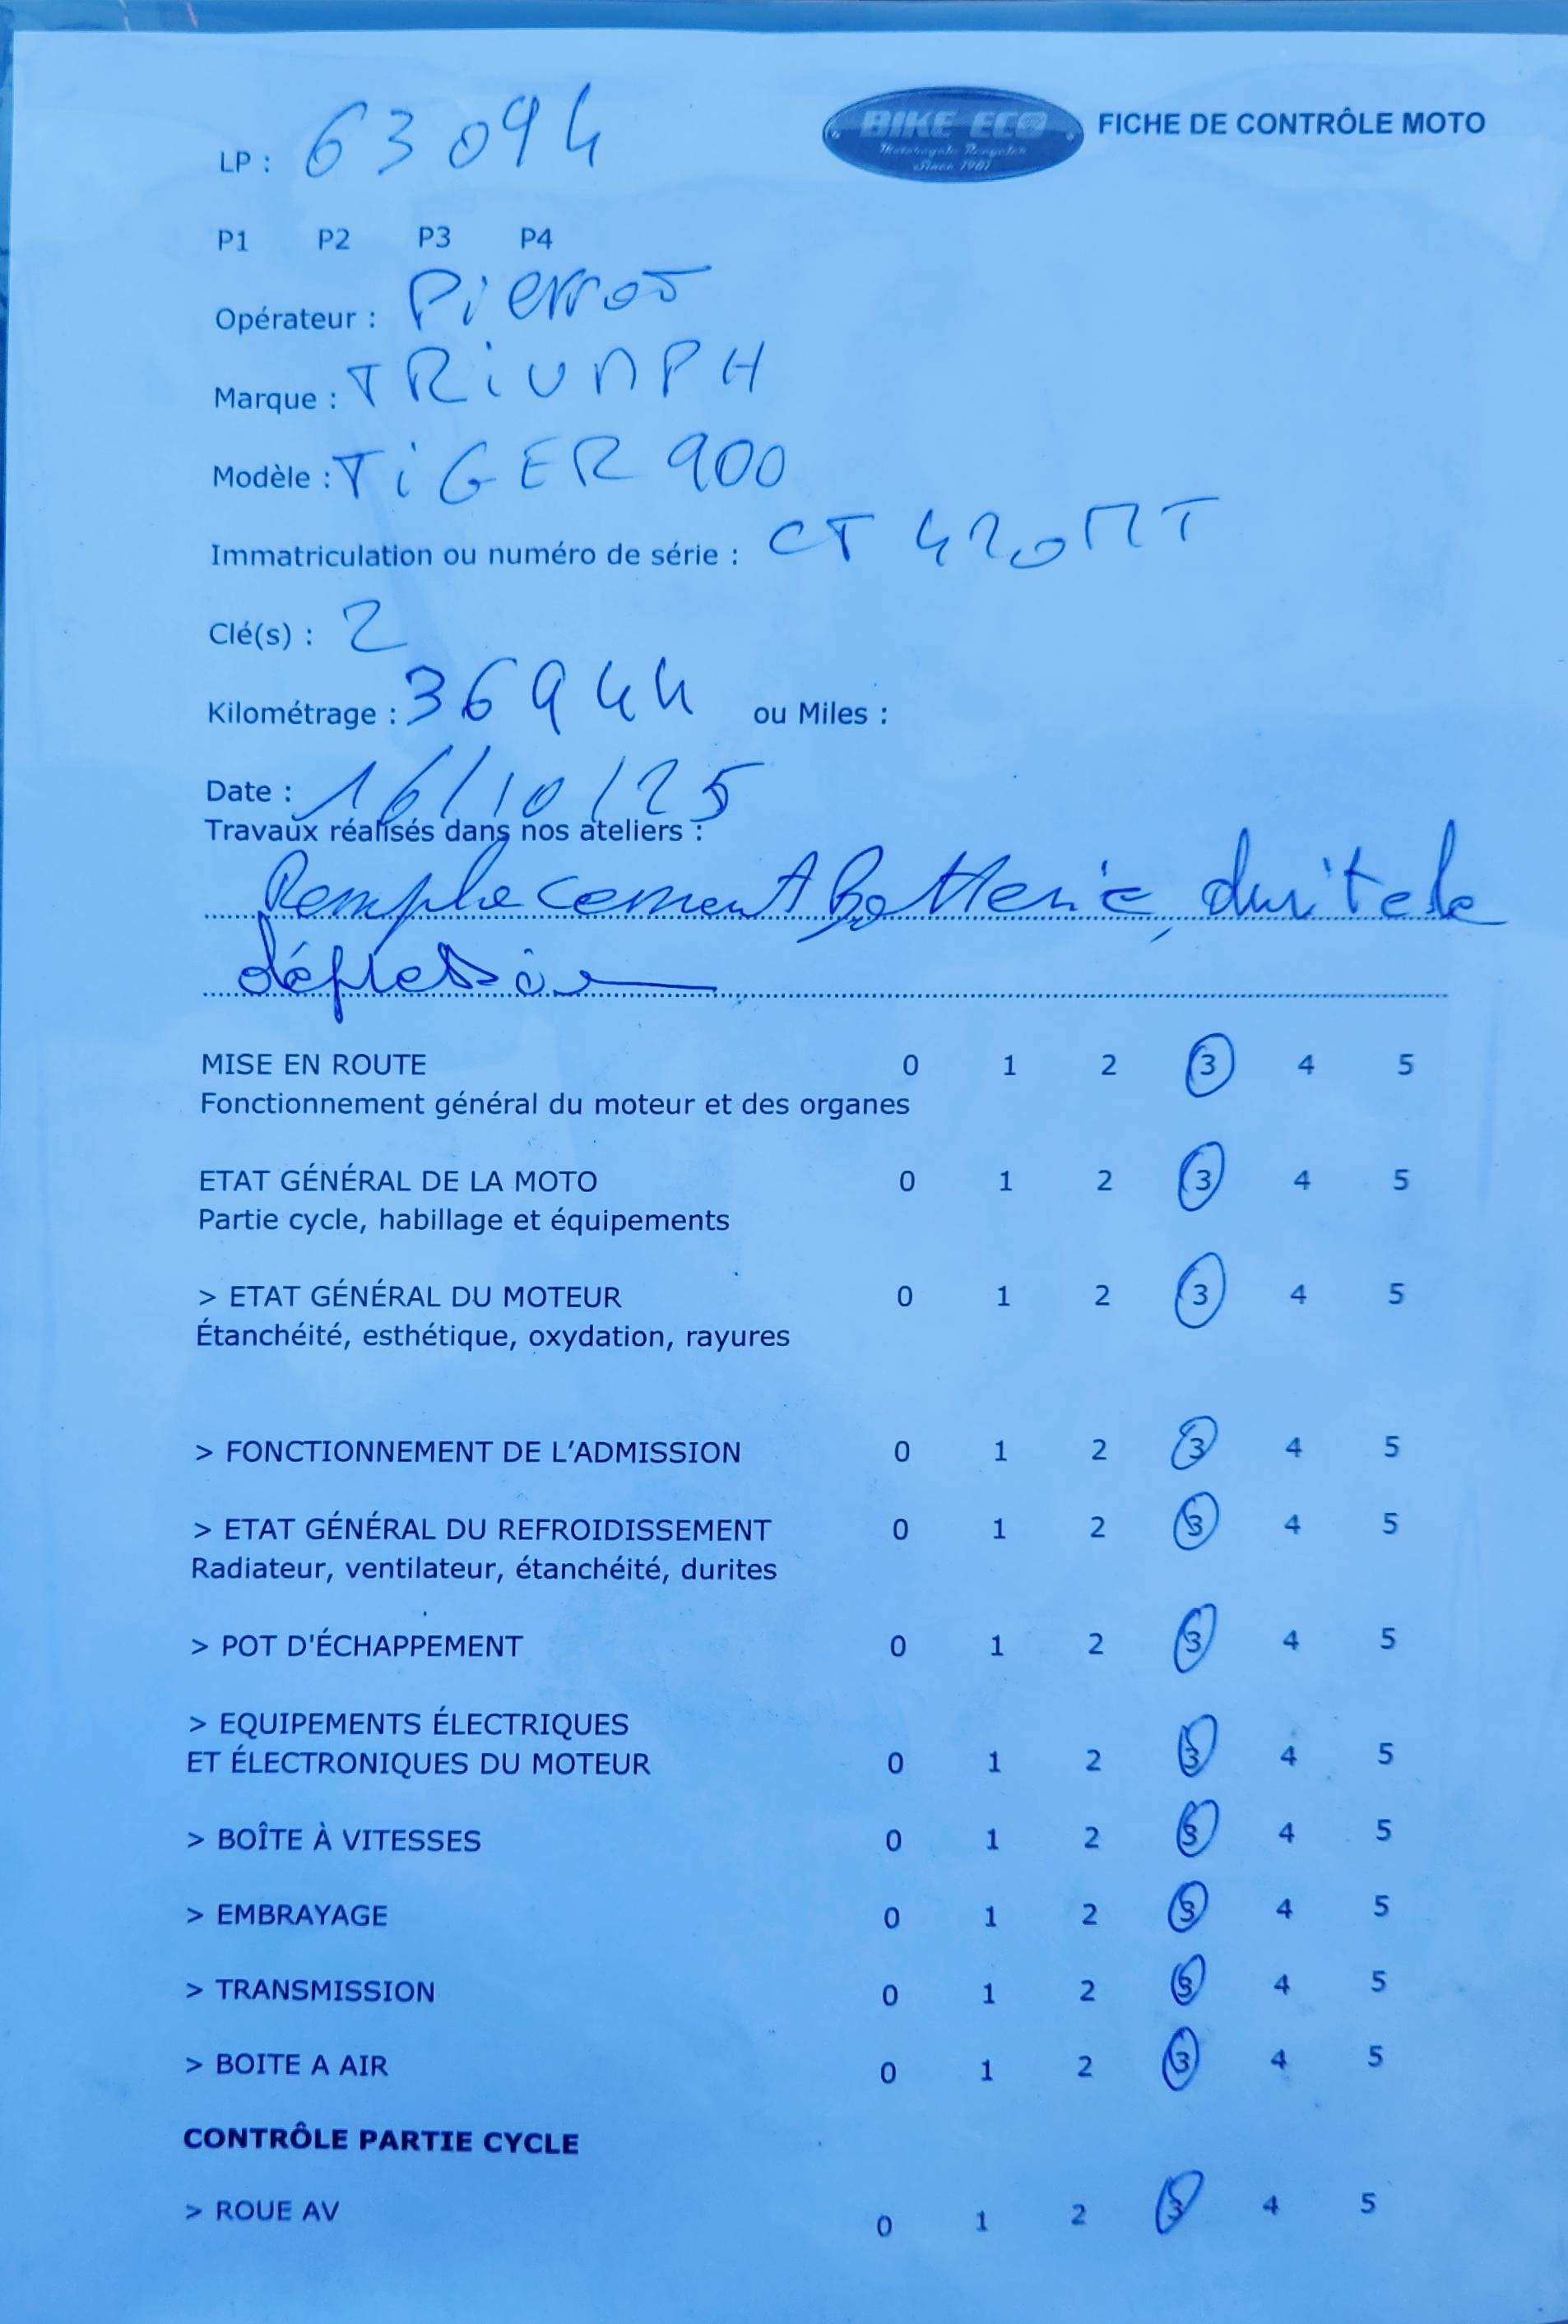 LP : 63094
BIKE ECO
Motorcycle Recycler
Since 1987
FICHE DE CONTRÔLE MOTO
P1 P2 P3 P4
Opérateur : Pierrot
Marque : TRiUMPH
Modèle : TiGER 900
Immatriculation ou numéro de série : CT 420 MT
Clé(s) : 2
Kilométrage : 36944 ou Miles :
Date : 16/10/25
Travaux réalisés dans nos ateliers :
Remplacement Batterie, durite de
dépression
MISE EN ROUTE 0 1 2 3 4 5
Fonctionnement général du moteur et des organes
ETAT GÉNÉRAL DE LA MOTO 0 1 2 3 4 5
Partie cycle, habillage et équipements
> ETAT GÉNÉRAL DU MOTEUR 0 1 2 3 4 5
Étanchéité, esthétique, oxydation, rayures
> FONCTIONNEMENT DE L'ADMISSION 0 1 2 3 4 5
> ETAT GÉNÉRAL DU REFROIDISSEMENT 0 1 2 3 4 5
Radiateur, ventilateur, étanchéité, durites
> POT D'ÉCHAPPEMENT 0 1 2 3 4 5
> EQUIPEMENTS ÉLECTRIQUES
ET ÉLECTRONIQUES DU MOTEUR 0 1 2 3 4 5
> BOÎTE À VITESSES 0 1 2 3 4 5
> EMBRAYAGE 0 1 2 3 4 5
> TRANSMISSION 0 1 2 3 4 5
> BOITE A AIR 0 1 2 3 4 5
CONTRÔLE PARTIE CYCLE
> ROUE AV 0 1 2 3 4 5